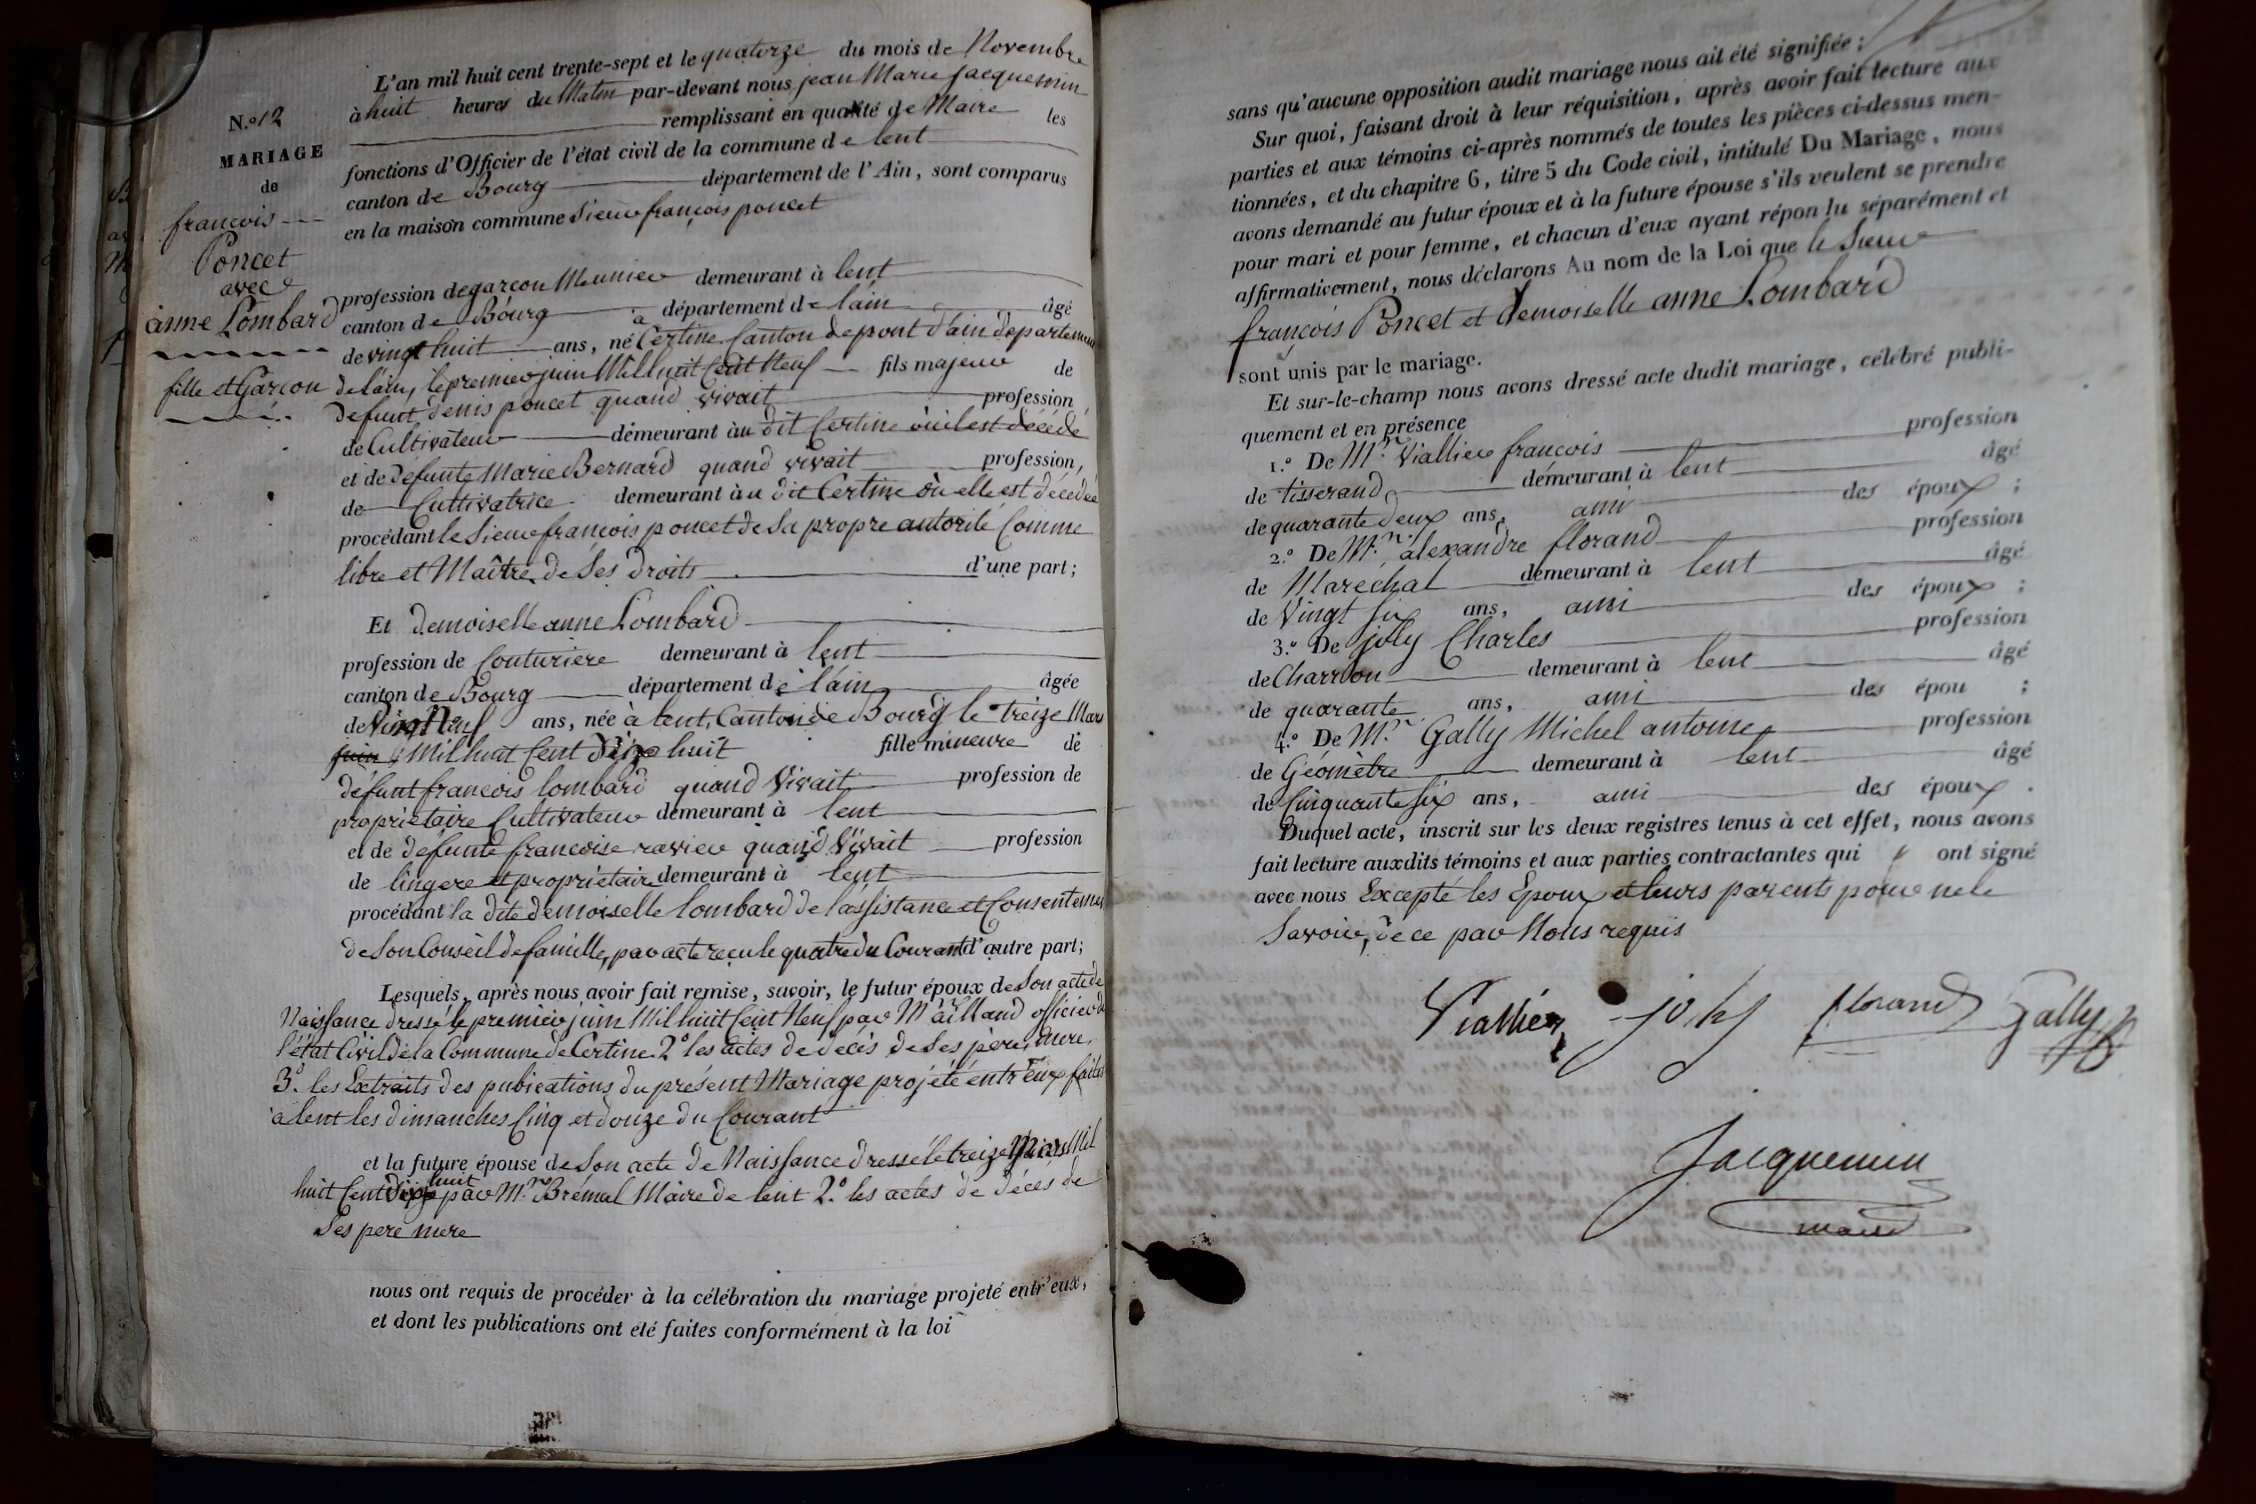 L'an mil huit cent trente-sept et le quatorze du mois de Novembre
à huit heures du Matin par-devant nous jean Marie Jacquemin
remplissant en qualité de Maire les
fonctions d'Officier de l'état civil de la commune de lent
canton de Bourg département de l'Ain, sont comparus
en la maison commune Sieur françois poncet
N.º 12
MARIAGE
de
françois
Poncet
avec
anne Lombard
fille et Garçon
profession de garçon Meunier demeurant à lent
canton de Bourg département de l'ain âgé
de vingt huit ans, né à Certine Canton de pont d'ain departement
de l'ain, le premier juin Mil huit Cent Neuf fils majeur de
defunt denis poncet quand vivait profession
de Cultivateur demeurant au dit Certine où il est décédé
et de defunte Marie Bernard quand vivait profession,
de Cultivatrice demeurant au dit Certine où elle est décédée
procédant le Sieur françois poncet de Sa propre autorité Comme
libre et Maître de Ses droits d'une part;
Et demoiselle anne Lombard
profession de Couturiere demeurant à lent
canton de Bourg département de l'ain âgée
de Vingt Neuf ans, née à lent, Canton de Bourg le treize Mars
juin Mil huit Cent dix huit fille mineure de
défunt françois lombard quand Vivait profession de
propriétaire Cultivateur demeurant à lent
et de défunte françoise ravier quand Vivait profession
de lingere et propriétaire demeurant à lent
procédant la dite demoiselle lombard de l'assistance et Consentement
de Son Conseil de famille, par acte reçu le quatre du Courant d'autre part;
Lesquels, après nous avoir fait remise, savoir, le futur époux de Son acte de
Naissance dressé le premier juin Mil huit Cent Neuf par Mr aillaud officier de
l'état Civil de la Commune de Certine 2º les actes de décès de Ses père, mere,
3º. les Extraits des pubications du présent Mariage projeté entr'eux faites
a lent les dimanches Cinq et douze du Courant
et la future épouse de Son acte de Naissance dressé le treize Mars Mil
huit Cent dix huit par Mr. Brémal Maire de lent 2.º les actes de décès de
Ses pere mere
nous ont requis de procéder à la célébration du mariage projeté entr'eux,
et dont les publications ont été faites conformément à la loi
sans qu'aucune opposition audit mariage nous ait été signifiée;
Sur quoi, faisant droit à leur réquisition, après avoir fait lecture aux
parties et aux témoins ci-après nommés de toutes les pièces ci-dessus men-
tionnées, et du chapitre 6, titre 5 du Code civil, intitulé Du Mariage, nous
avons demandé au futur époux et à la future épouse s'ils veulent se prendre
pour mari et pour femme, et chacun d'eux ayant répondu séparément et
affirmativement, nous déclarons Au nom de la Loi que le Sieur
françois Poncet et demoiselle anne Lombard
sont unis par le mariage.
Et sur-le-champ nous avons dressé acte dudit mariage, célébré publi-
quement et en présence
1.º De Mr. Viallier françois profession
de tisserand demeurant à lent âgé
de quarante deux ans, ami des époux ;
2.º De Mr. alexandre florand profession
de Maréchal demeurant à lent âgé
de Vingt Six ans, ami des époux ;
3.º De joly Charles profession
de Charron demeurant à lent âgé
de quarante ans, ami des épou ;
4.º De Mr. Gally Michel antoine profession
de Géomètre demeurant à lent âgé
de Cinquante Six ans, ami des époux .
Duquel acte, inscrit sur les deux registres tenus à cet effet, nous avons
fait lecture auxdits témoins et aux parties contractantes qui ont signé
avec nous Excepté les Epoux et leurs parents pour ne le
Savoir, de ce par Nous requis
Viallier joly florand Gally
Jacquemin
maire